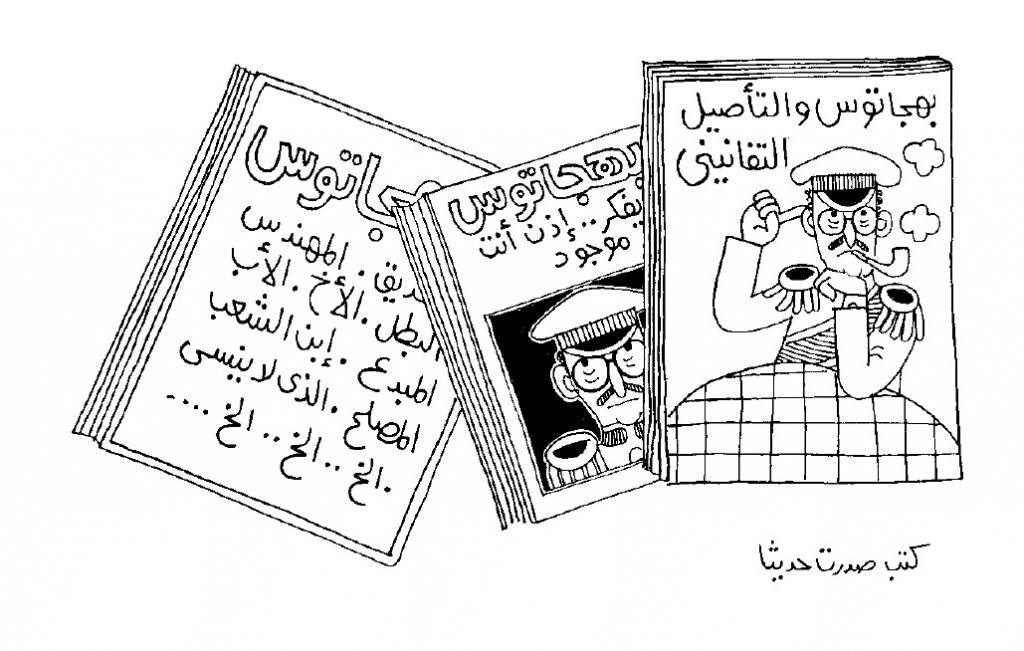 بهجاتوس والتأصيل
التقانيني
بهجاتوس
يفكر.. إذن أنت
موجود
جاتوس
ديق. المهندس
البطل. الأخ. الأب
المبدع. إبن الشعب
المصلح. الذى لا ينسى
.الخ.. الخ.. الخ....
كتب صدرت حديثا